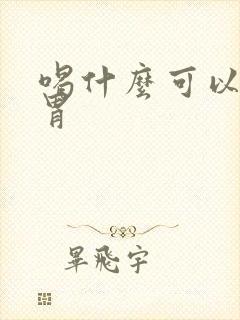 喝什麼可以
胃
畢飛宇